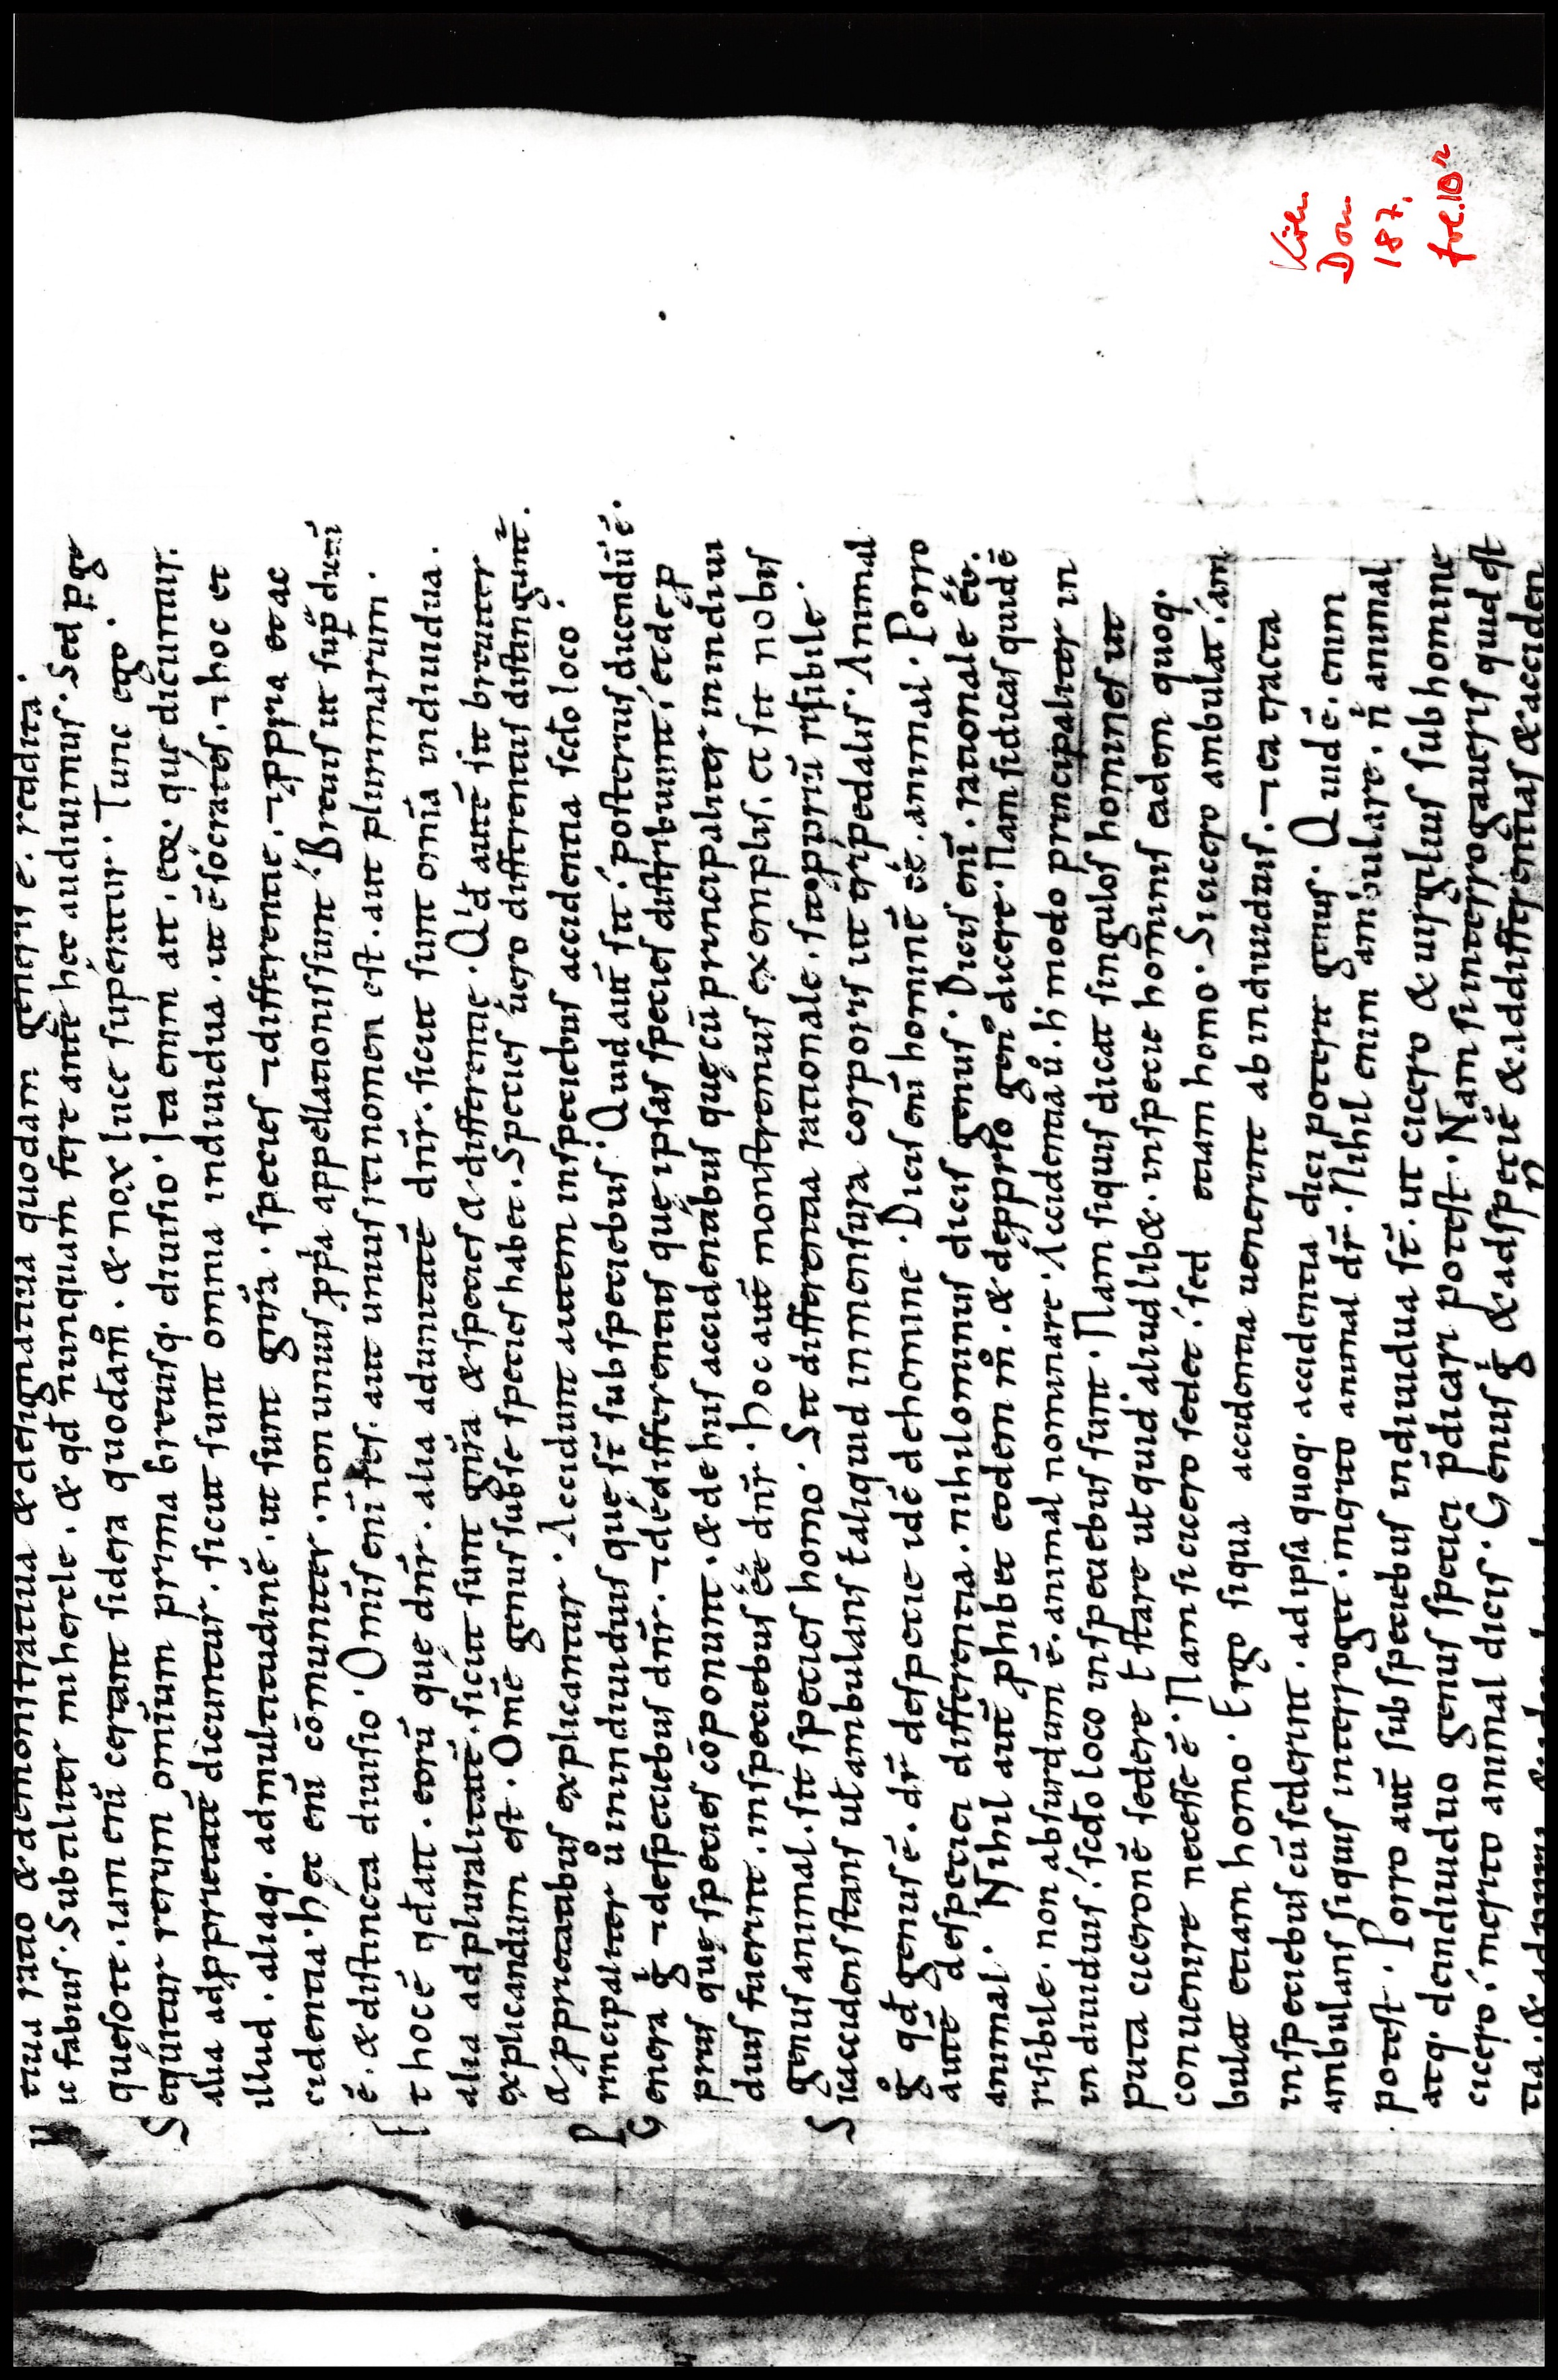 tiua ratio & demonstratiua & designatiua quodam generis ē. reddita.
Hic fabius. Subtiliter mihercle. & qđ nunquam fere ante hec audiuimus. Sed pge
quęso te. iam eni certant sidera quodām. & nox luce superatur. Tunc ego.
Sequitur rerum omium prima breuisq. diuisio. Ita enim aıt. eoꝝ. quę dicuntur.
alia adpprietatē dicuntur. sicut sunt omnia indiuidua. ut ē socrates. ⁊ hoc et
illud. aliaq. admultitudinē. ut sunt gnīra. species ⁊ differentie. ⁊ ppria et ac
cidentia. hęc eni cōmuniter. non unius ppa appellationis sunt. Breuis ut sup dixi
ē. & distincta diuisio. Omīs eni res. aut unius rei nomen est. aut plurimarum.
Et hoc ē qđ aıt. eorū que dnr. alia adunitatē dnr. sicut sunt omīa indiuidua.
alia adpluralitatē. sicut sunt gnīra & species & differentie. Qid autē sit breuiter
explicandum est. Omē genus sub se species habet. Species uero differentiis distingunt̃.
a pprietatibus explicantur. Accidunt autem inspeciebus accidentia scđo loco.
Principaliter ů inindiuiduis que st̄ sub speciebus. Quid aut̄ sit. posterius dicendū ē.
Genera g ⁊ despeciebus dnr. ⁊ dedifferentiis quę ipsas species distribuunt. et de p
priis quę species cōponunt. & de his accidentibus quę cū principaliter in indiui
duis fuerint. inspeciebus ēē dnr. hoc aut̄ monstremus exemplis. et sit nobis
genus animal. sit species homo. Sit differentia rationale. sit ppriū risibile.
Sit accidens stans ut ambulans t aliquid inmensura corporis ut tripedalis. Animal
g qđ genus ē. dr̄ despecie idē dehomine. Dicis eni hominē ēē. animal. Porro
autē despeciei differentia. nihilominus dicis genus. Dicis eni. rationale ēē.
animal. Nihil aut̄ phibet eodem m̊. & deppriō gen̊ dicere. Nam si dicas quid ē
risibile. non absurdum ē. animal nominare. Accidentia ů. h̕ modo principaliter in
in diuiduis. scđo loco inspeciebus sunt. Nam siquis dicat singulos homines ut
puta ciceronē sedere t stare ut quid aliud lib&. inspecie hominis eadem quoq.
conuenire necesse ē. Nam si cicero sedet. sed etiam homo. Si cicero ambulat. am
bulat etiam homo. Ergo siqua accidentia uenerint ab indiuiduis. ⁊ ea tracta
inspeciebus cū sederint. ad ipsa quoq. accidentia dici poterit genus. Quid ē. enim
ambulans siquis interroget. inquito animal dr̄. Nihil enim ambulare. ñ animal
potest. Porro aut̄ sub speciebus indiuidua st̄. ut cicero & uirgilius sub homine
atq. deindiuiduo genus speciei pdicari potest. Nam si interrogaueris quid est
cicero. merito animal dicis. Genus g & adspeciē & addifferentias & acciden
Köln
Dom
187.
fol.10r